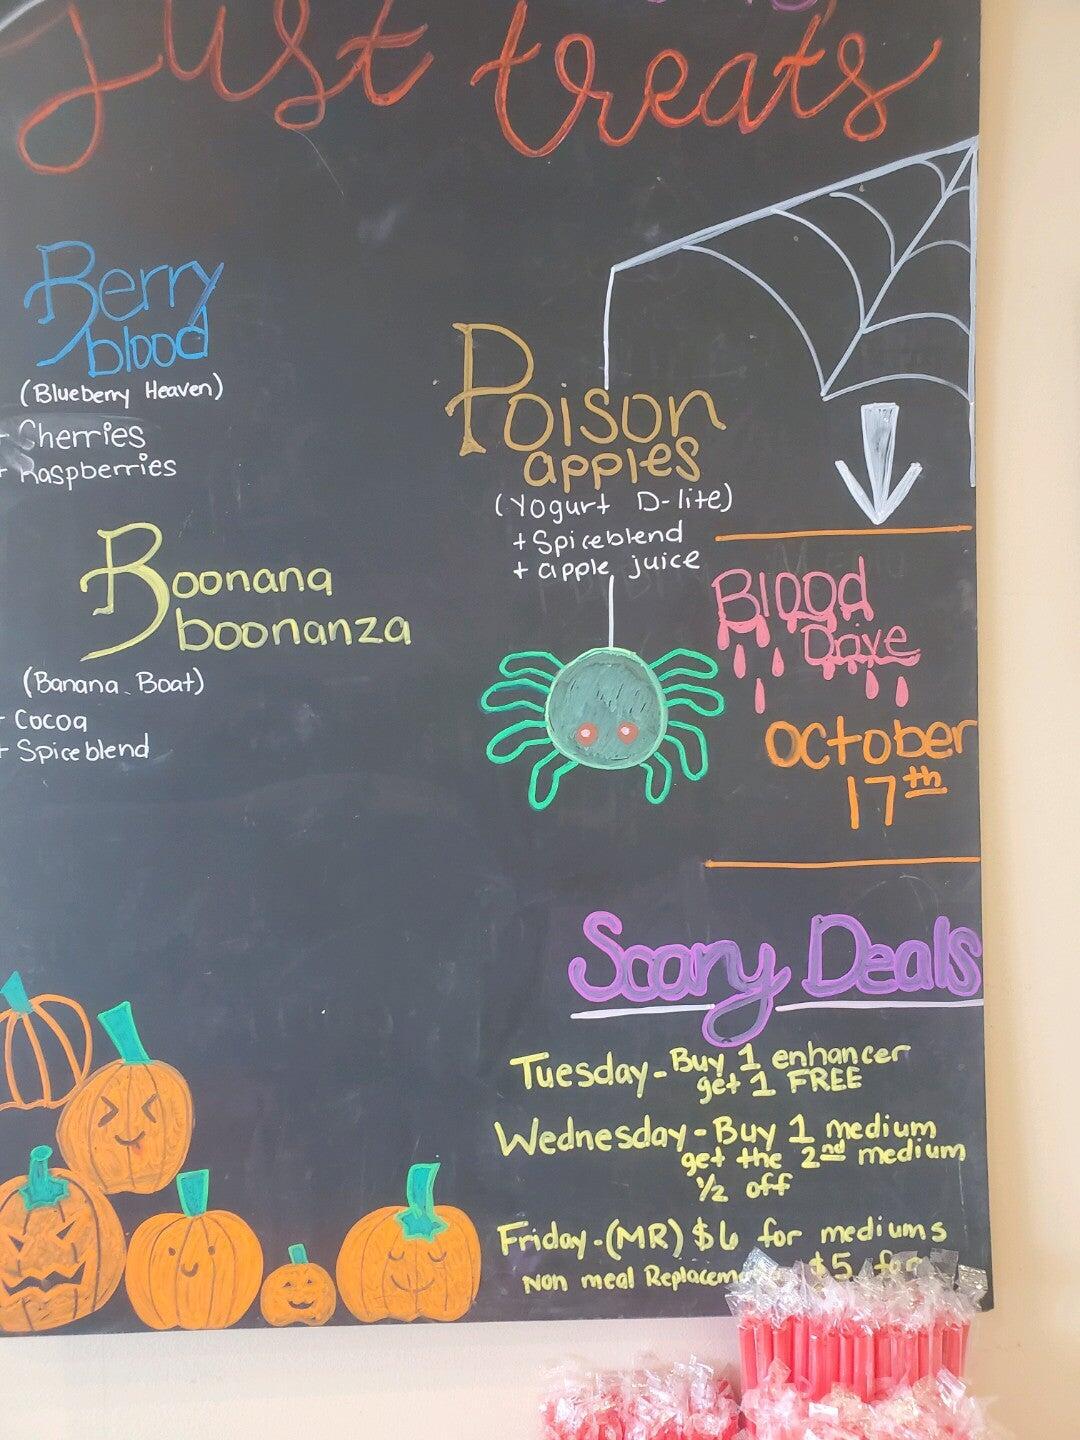 Just treats
Berry
blood
(Blueberry Heaven)
+ Cherries
+ Raspberries
Poison
apples
(Yogurt D-lite)
+ Spiceblend
+ apple juice
Boonana
boonanza
(Banana Boat)
+ Cocoa
+ Spiceblend
Blood
Drive
October
17th
Scary Deals
Tuesday - Buy 1 enhancer
get 1 FREE
Wednesday - Buy 1 medium
get the 2nd medium
1/2 off
Friday - (MR) $6 for mediums
Non meal $5 for